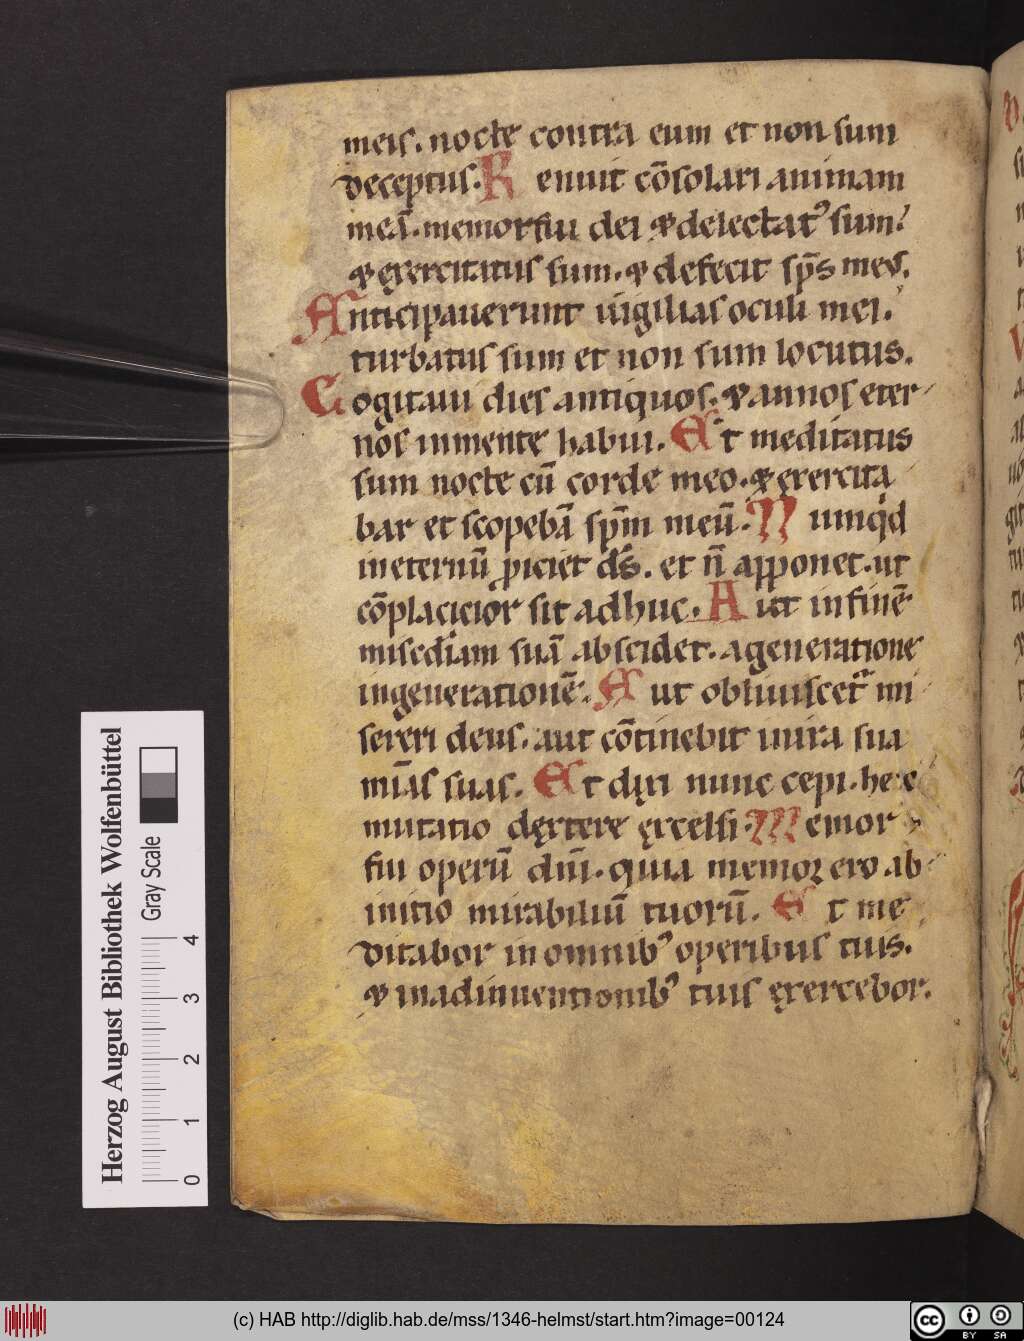 meis. nocte contra eum et non sum
deceptus. Renuit cōsolari animam
meā. memor fui dei ⁊ delectatꝰ sum.
⁊ exercitatus sum. ⁊ defecit sp̄s meus.
Anticipauerunt uigilias oculi mei.
turbatus sum et non sum locutus.
Cogitaui dies antiquos. ⁊ annos eter
nos in mente habui. Et meditatus
sum nocte cū corde meo. ⁊ exercita
bar et scopebā sp̄m meū. Numqͥd
in eternū ꝓiciet ds̄. et n̄ apponet. ut
cōplacicior sit adhuc. Aut in finē
miscd̄iam suā abscidet. a generatione
in generationē. Aut obliuiscet᷑ mi
sereri deus. aut cōtinebit in ira sua
mīas suas. Et dixi nunc cepi. hec
mutatio dextere excelsi. Memor
fui operū dn̄i. quia memor ero ab
initio mirabiliū tuorū. Et me
ditabor in omnibꝰ operibus tuis.
⁊ in adinuentionibꝰ tuis exercebor.
Herzog August Bibliothek Wolfenbüttel
Gray Scale
0 1 2 3 4
(c) HAB http://diglib.hab.de/mss/1346-helmst/start.htm?image=00124
cc BY SA